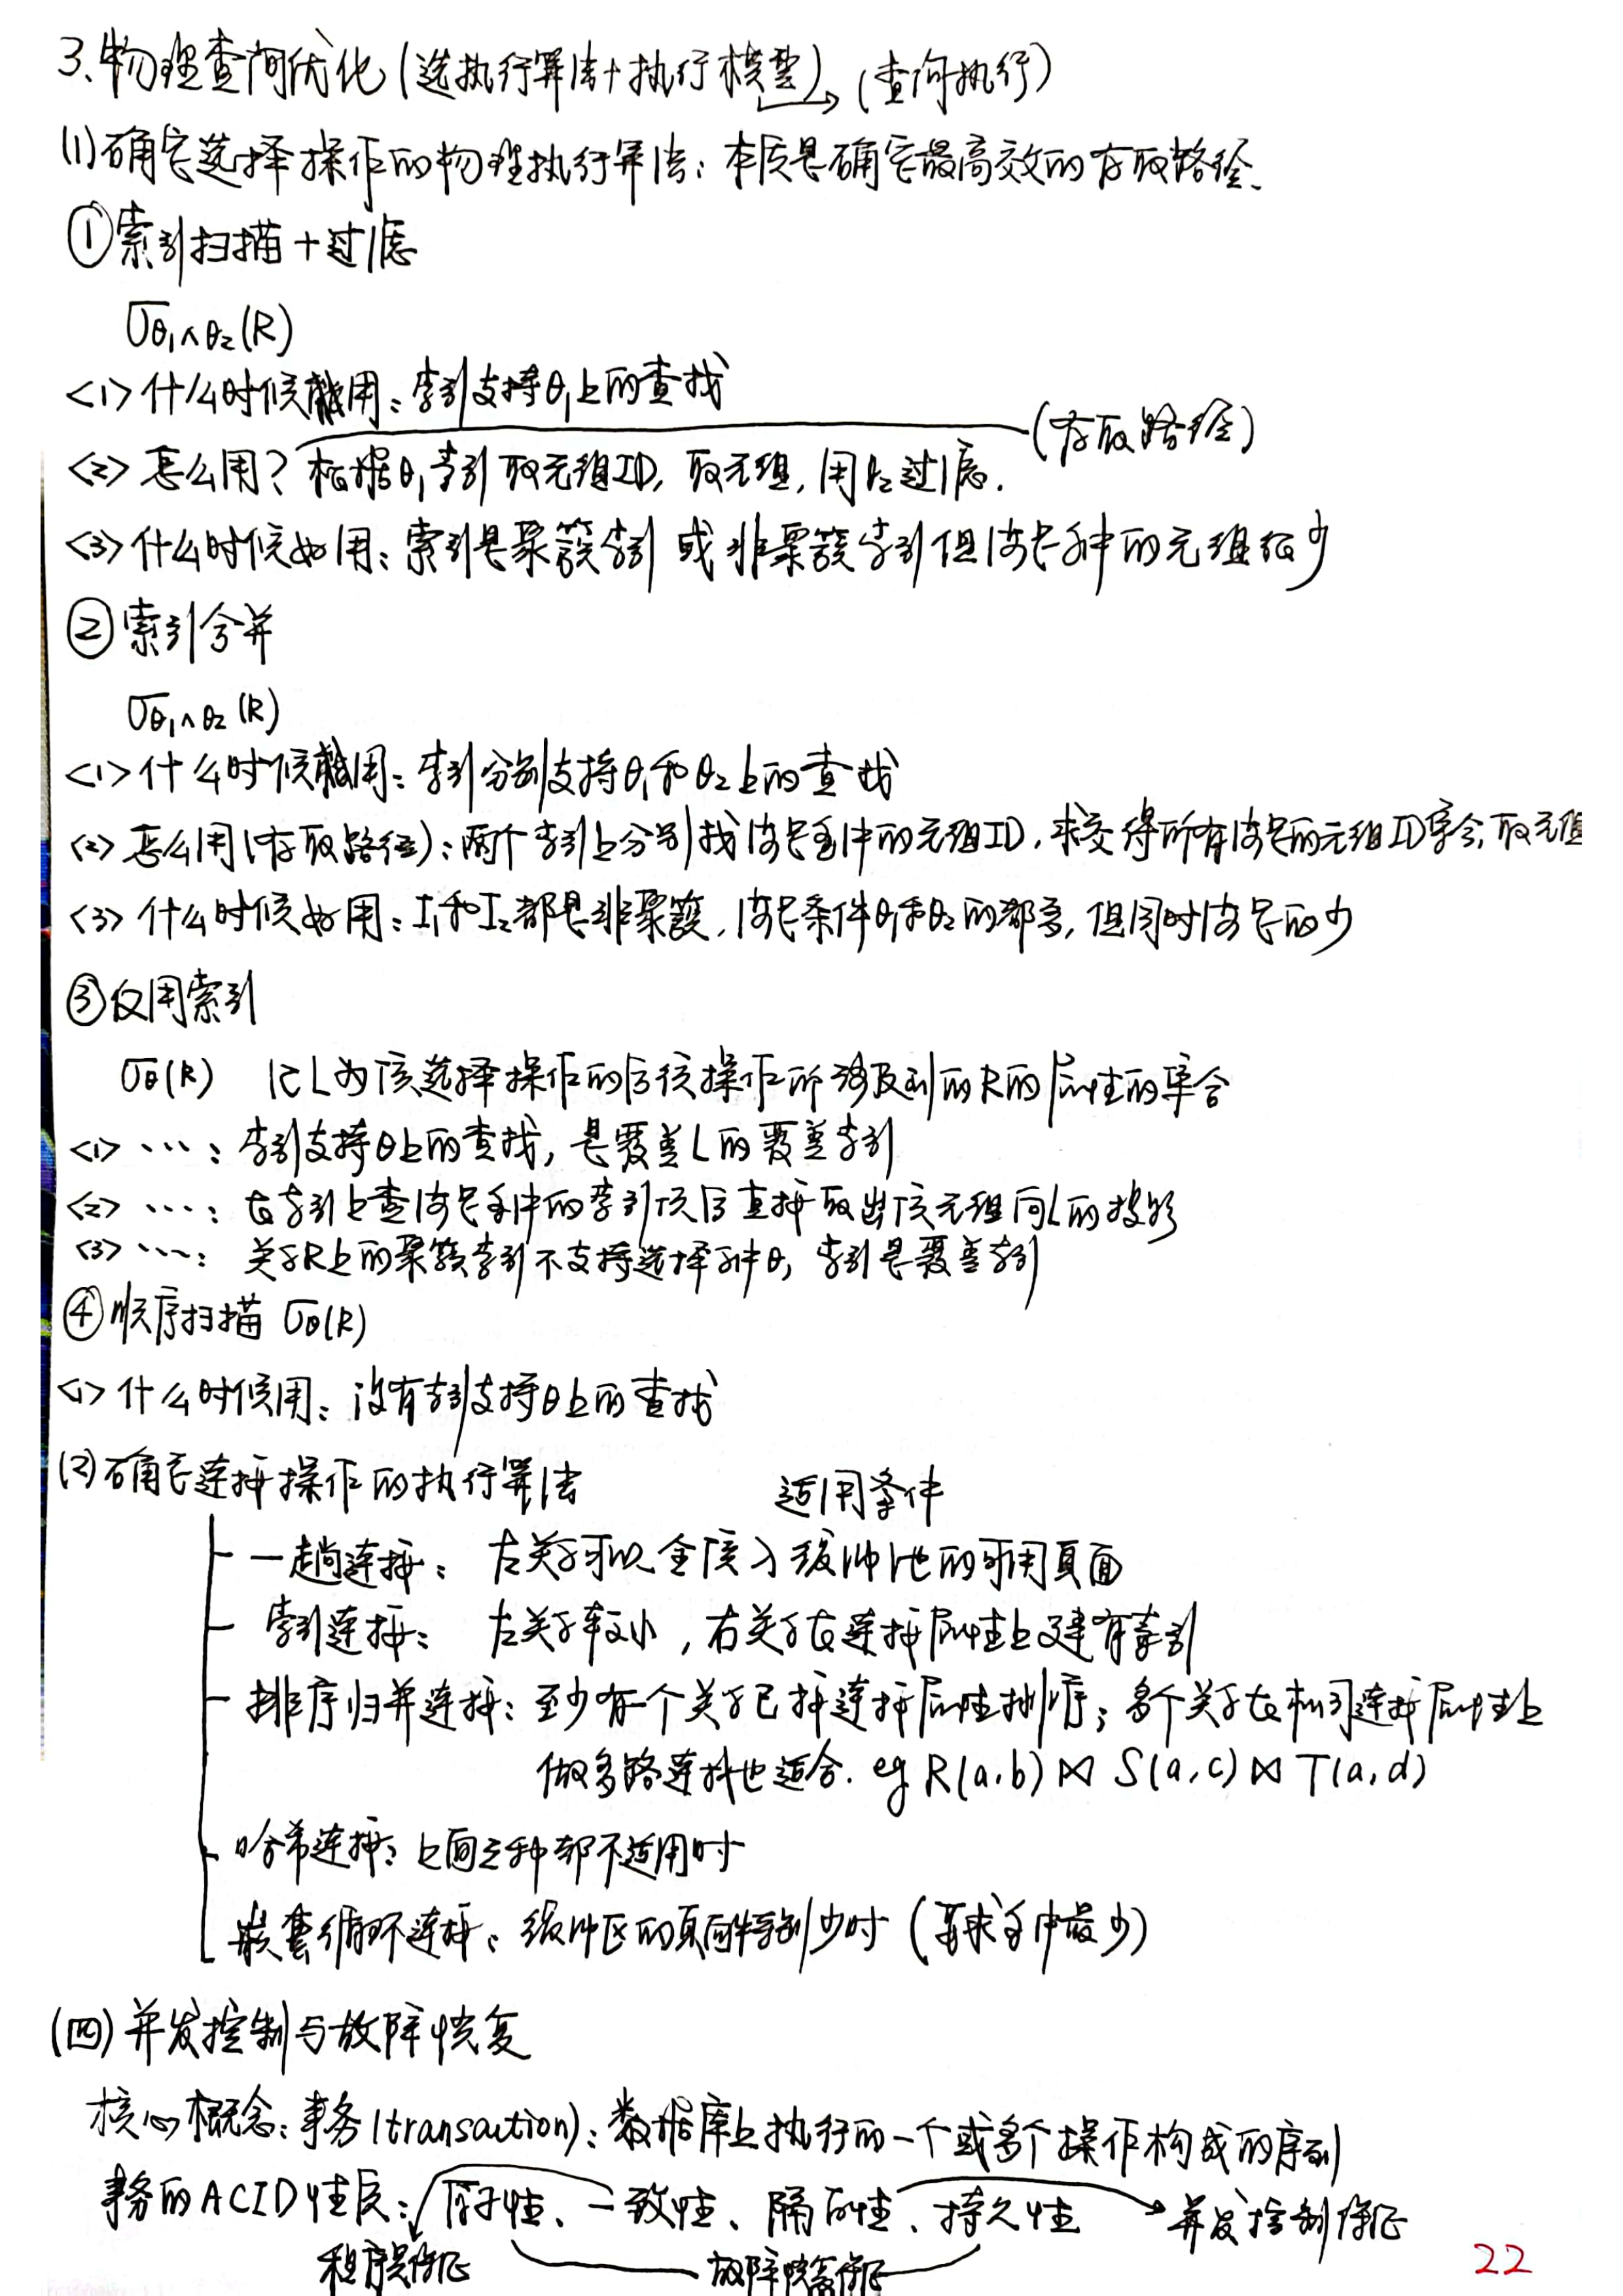 3、物理查询优化(选执行算法+执行模型)→(查询执行)
(1)确定选择操作的物理执行算法:本质是确定最高效的存取路径.
①索引扫描+过滤
σθ₁∧θ₂(R)
<1>什么时候能用:索引支持θ₁上的查找
<2>怎么用?根据θ₁索引取元组ID,取元组,用θ₂过滤. (存取路径)
<3>什么时候好用:索引是聚簇索引或非聚簇索引但满足条件的元组很少
②索引合并
σθ₁∧θ₂(R)
<1>什么时候能用:索引分别支持θ₁和θ₂上的查找
<2>怎么用(存取路径):两个索引上分别找满足条件的元组ID,求交得所有满足的元组ID集合,取元组
<3>什么时候好用:I₁和I₂都是非聚簇,满足条件θ₁和θ₂的都多,但同时满足的少
③仅用索引
σθ(R) 记L为该选择操作的后续操作所涉及到的R的属性的集合
<1>…:索引支持θ上的查找,是覆盖L的覆盖索引
<2>…:在索引上查满足条件的索引项后直接取出该元组向L的投影
<3>…:关系R上的聚簇索引不支持选择条件θ,索引是覆盖索引
④顺序扫描 σθ(R)
<1>什么时候用:没有索引支持θ上的查找
(2)确定连接操作的执行算法 适用条件
一趟连接:左关系可以全读入缓冲池的可用页面
索引连接:左关系较小,右关系在连接属性上建有索引
排序归并连接:至少有一个关系已按连接属性排序;多个关系在相同连接属性上
做多路连接也适合. eg R(a,b)⋈S(a,c)⋈T(a,d)
哈希连接:上面三种都不适用时
嵌套循环连接:缓冲区的页面特别少时(要求条件最少)
(四)并发控制与故障恢复
核心概念:事务(transaction):数据库上执行的一个或多个操作构成的序列
事务的ACID性质:原子性、一致性、隔离性、持久性→并发控制保证
程序员保证 故障恢复保证
22